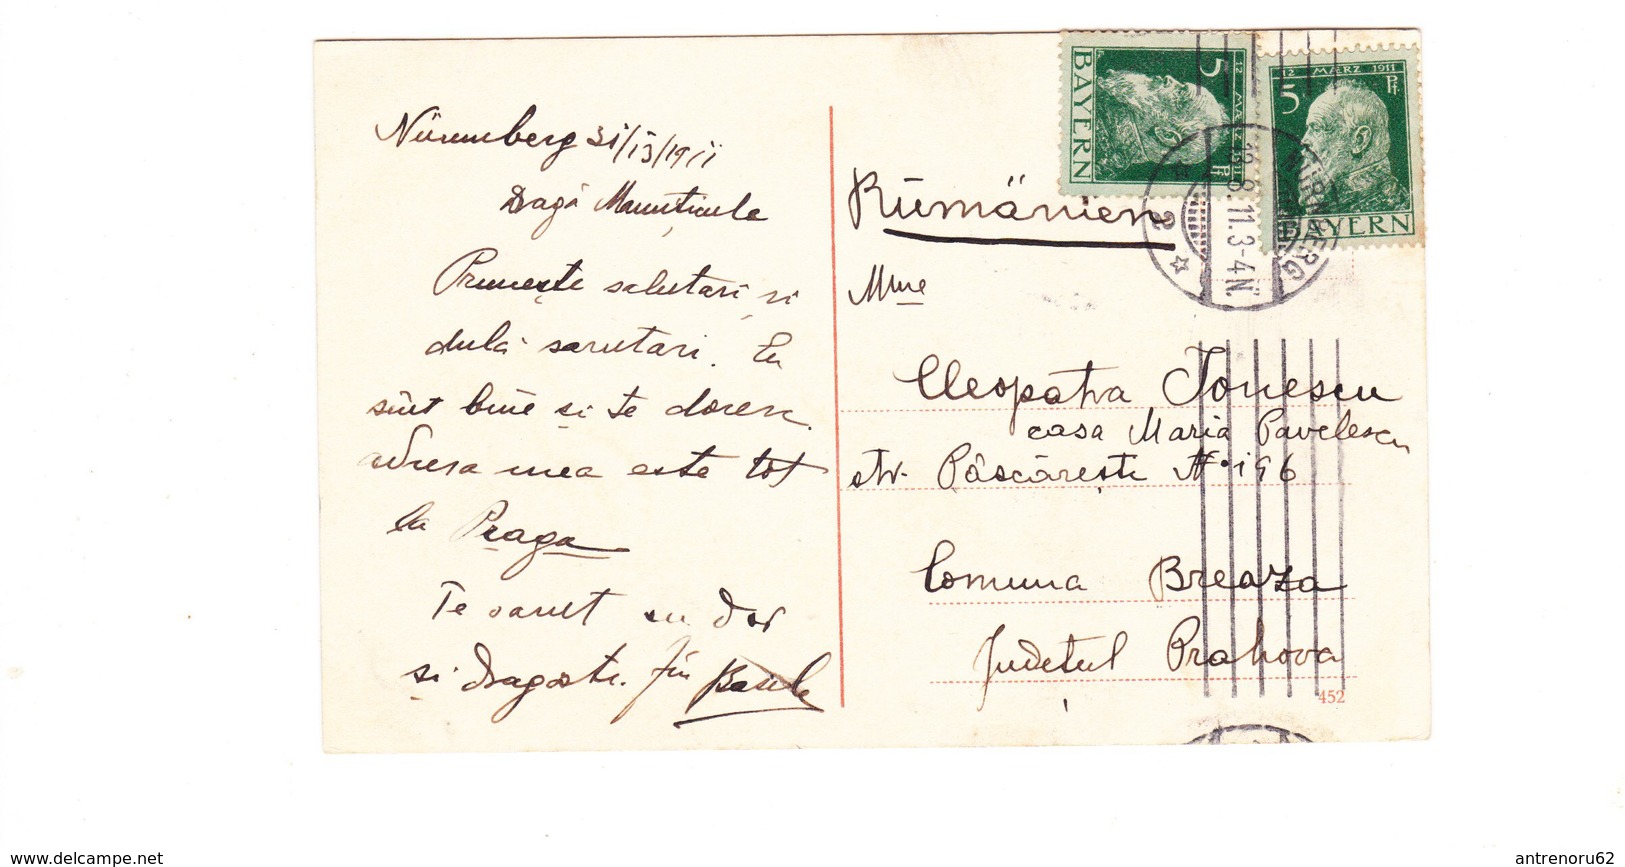 Nüremberg 31/13/1911
Dragă Mamiticule
Primește salutări și
dulci sarutari. Eu
sînt bine și te doresc.
adresa mea este tot
la Praga
Te sarut cu dor
și dragoste. fiu Basile
Rümänien
Mme
Cleopatra Ionescu
casa Maria Pavelescu
str. Pâscărești No 196
Comuna Breaza
Județul Prahova
452
BAYERN
5 Pf
12 MÆRZ 1911
12 MÆRZ 1911
5 Pf
BAYERN
NÜRNBERG
13.8.11.3-4N.
2
www.delcampe.net
antrenoru62